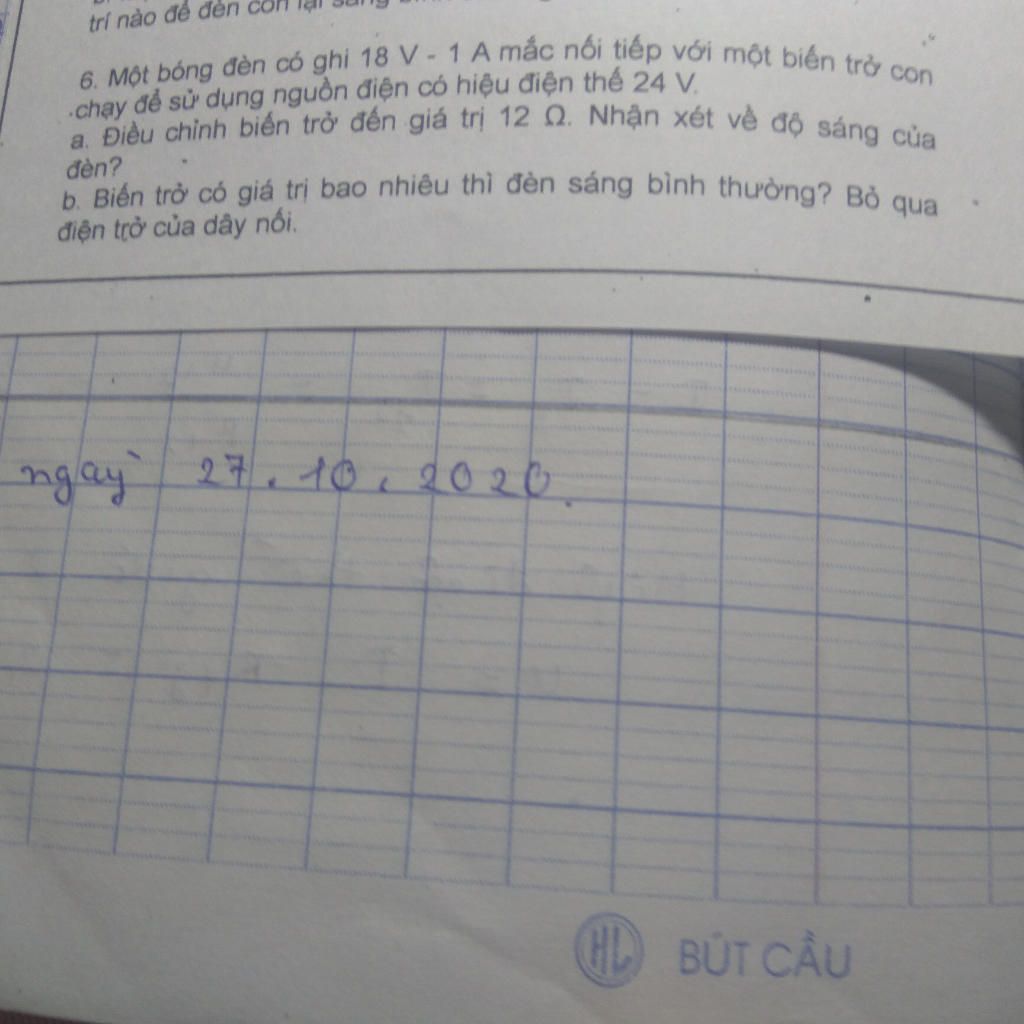 trí nào để đèn còn lại sáng
6. Một bóng đèn có ghi 18 V - 1 A mắc nối tiếp với một biến trở con
chạy để sử dụng nguồn điện có hiệu điện thế 24 V.
a. Điều chỉnh biến trở đến giá trị 12 Ω. Nhận xét về độ sáng của
đèn?
b. Biến trở có giá trị bao nhiêu thì đèn sáng bình thường? Bỏ qua
điện trở của dây nối.
ngày 27.10.2020.
HL BÚT CẦU